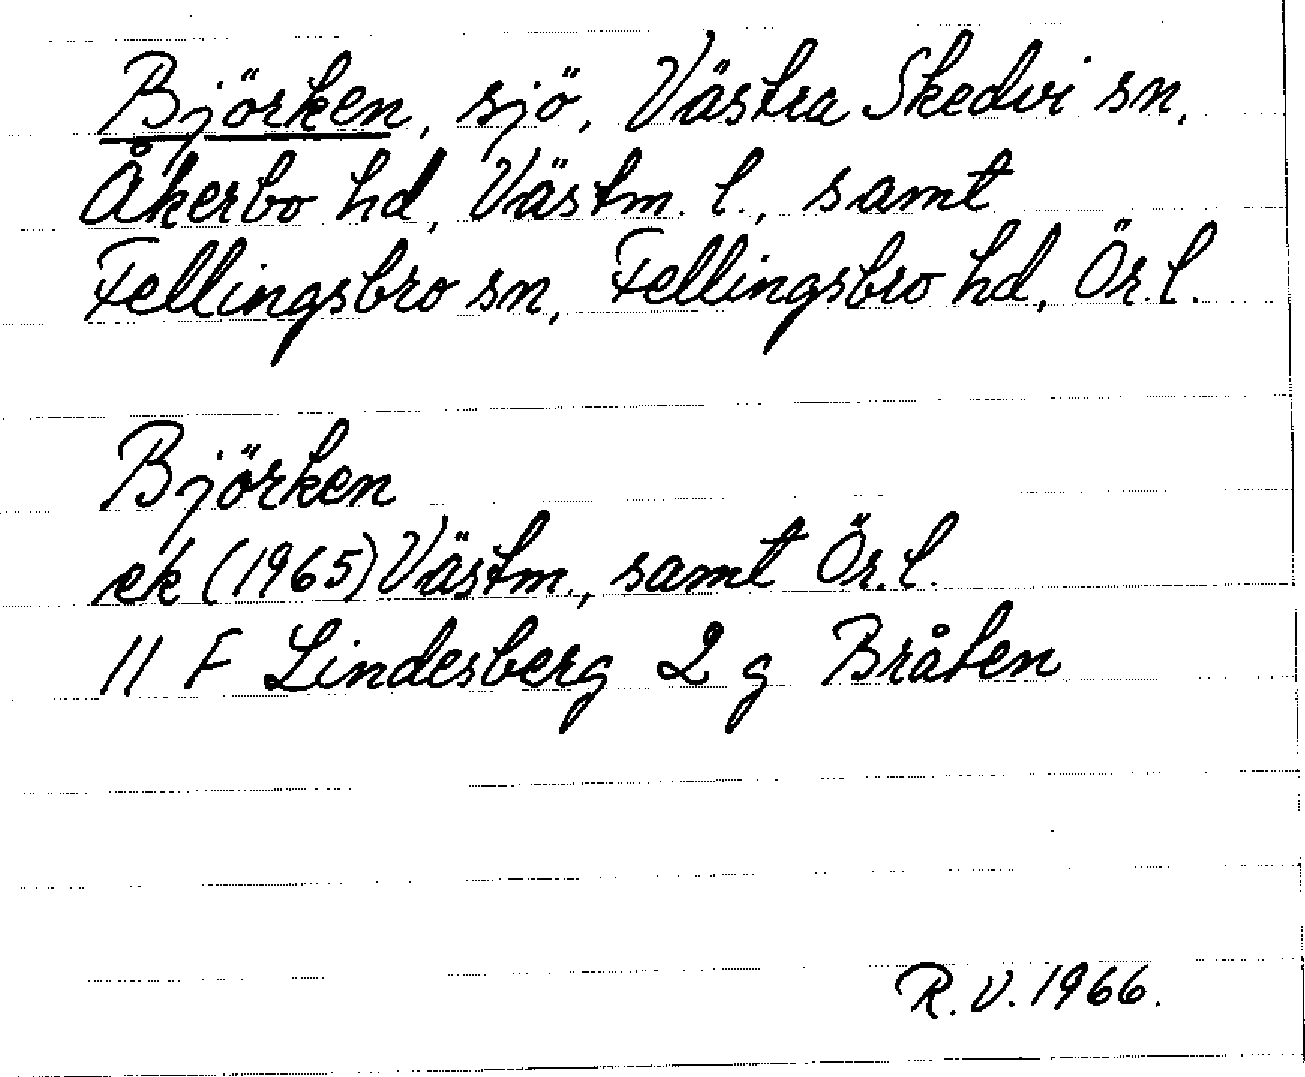 Björken, sjö, Västra Skedvi sn,
Åkerbo hd, Västm. l., samt
Fellingsbro sn, Fellingsbro hd, Ör. l.
Björken
ek (1965) Västm., samt Ör. l.
11 F Lindesberg 2 g Bråten
R.V. 1966.